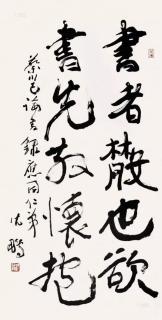 書者散也欲
書先散懷抱
蔡邕論書錄應同仁弟
沈鵬